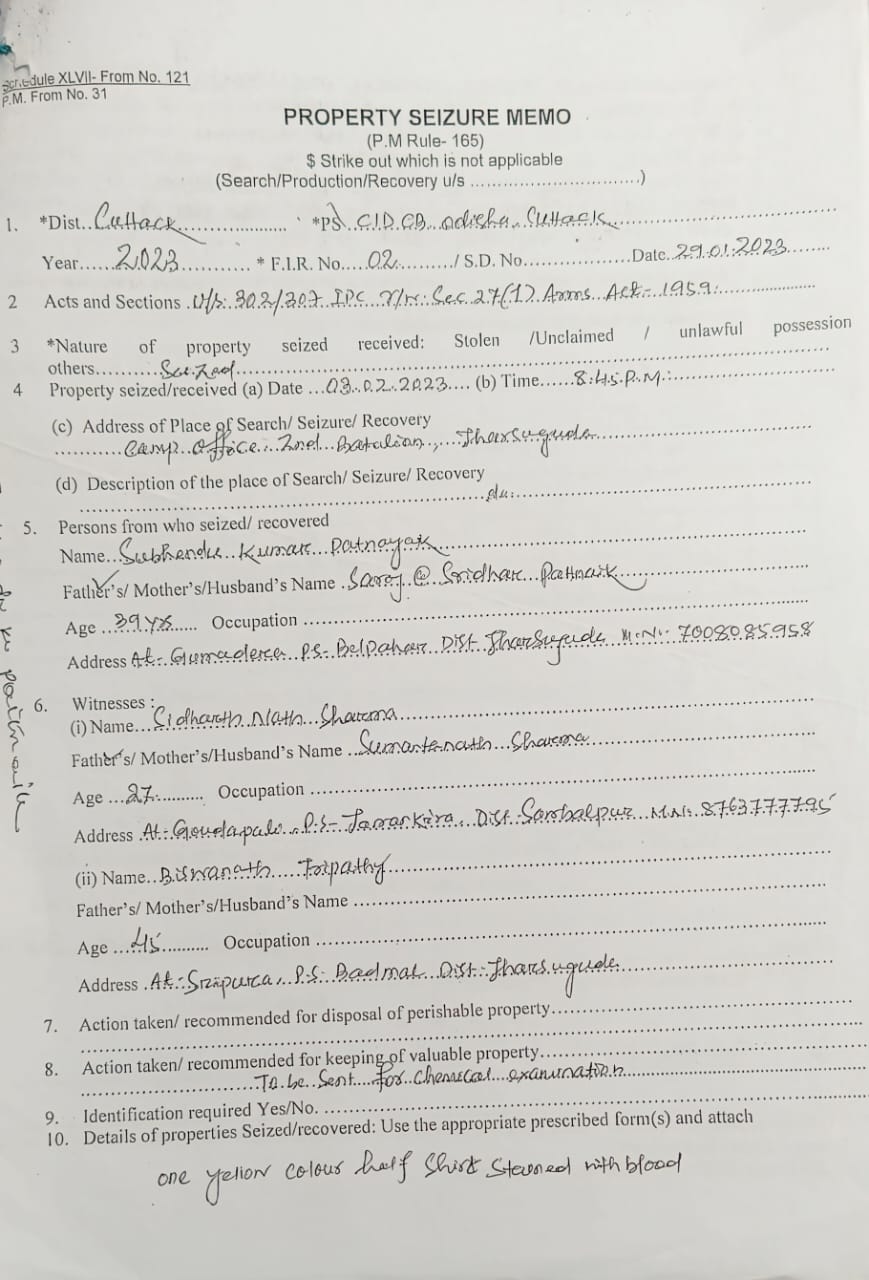 Schedule XLVII- From No. 121
P.M. From No. 31
PROPERTY SEIZURE MEMO
(P.M Rule- 165)
$ Strike out which is not applicable
(Search/Production/Recovery u/s ..............................)
1. *Dist..Cuttack.................... *PS C.I.D.CB..Odisha..Cuttack..............................
Year......2023........... * F.I.R. No.....02........../ S.D. No..................Date..29.01.2023.......
2 Acts and Sections .U/s. 302/307 IPC r/w. Sec. 27(1) Arms Act- 1959...................
3 *Nature of property seized received: Stolen /Unclaimed / unlawful possession
others..........Seized..............................
4 Property seized/received (a) Date ...03.02.2023.... (b) Time......8:45.P.M...............
(c) Address of Place of Search/ Seizure/ Recovery
...........Camp..Office..2nd..Batalian.,...Jharsuguda..............................
(d) Description of the place of Search/ Seizure/ Recovery
..............................do..............................
5. Persons from who seized/ recovered
Name..Subhendu..Kumar...Patnayak..............................
Father's/ Mother's/Husband's Name .Saroj..@..Sridhar...Pattnaik..............
Age ...39 Yrs...... Occupation ..............................
Address At-..Gumaderea..P.S-.Belpahar..Dist-Jharsuguda..M.N:-7008085958
6. Witnesses :
(i) Name...Sidharth..Nath...Sharma..............................
Father's/ Mother's/Husband's Name ..Sumantanath...Sharma..............
Age ...27.......... Occupation ..............................
Address .At-.Goudapali..P.S-.Jamankira..Dist-Sambalpur...M.N:.8763777795
(ii) Name..Biswanath....Tripathy..............................
Father's/ Mother's/Husband's Name ..............................
Age ...45.......... Occupation ..............................
Address .At-.Sripura..P.S-.Badmal..Dist-.Jharsuguda..............................
7. Action taken/ recommended for disposal of perishable property..............................
8. Action taken/ recommended for keeping of valuable property..............................
..............To.be..Sent...for..Chemical...examination..............................
9. Identification required Yes/No. ..............................
10. Details of properties Seized/recovered: Use the appropriate prescribed form(s) and attach
one yellow colour half Shirt Stained with blood